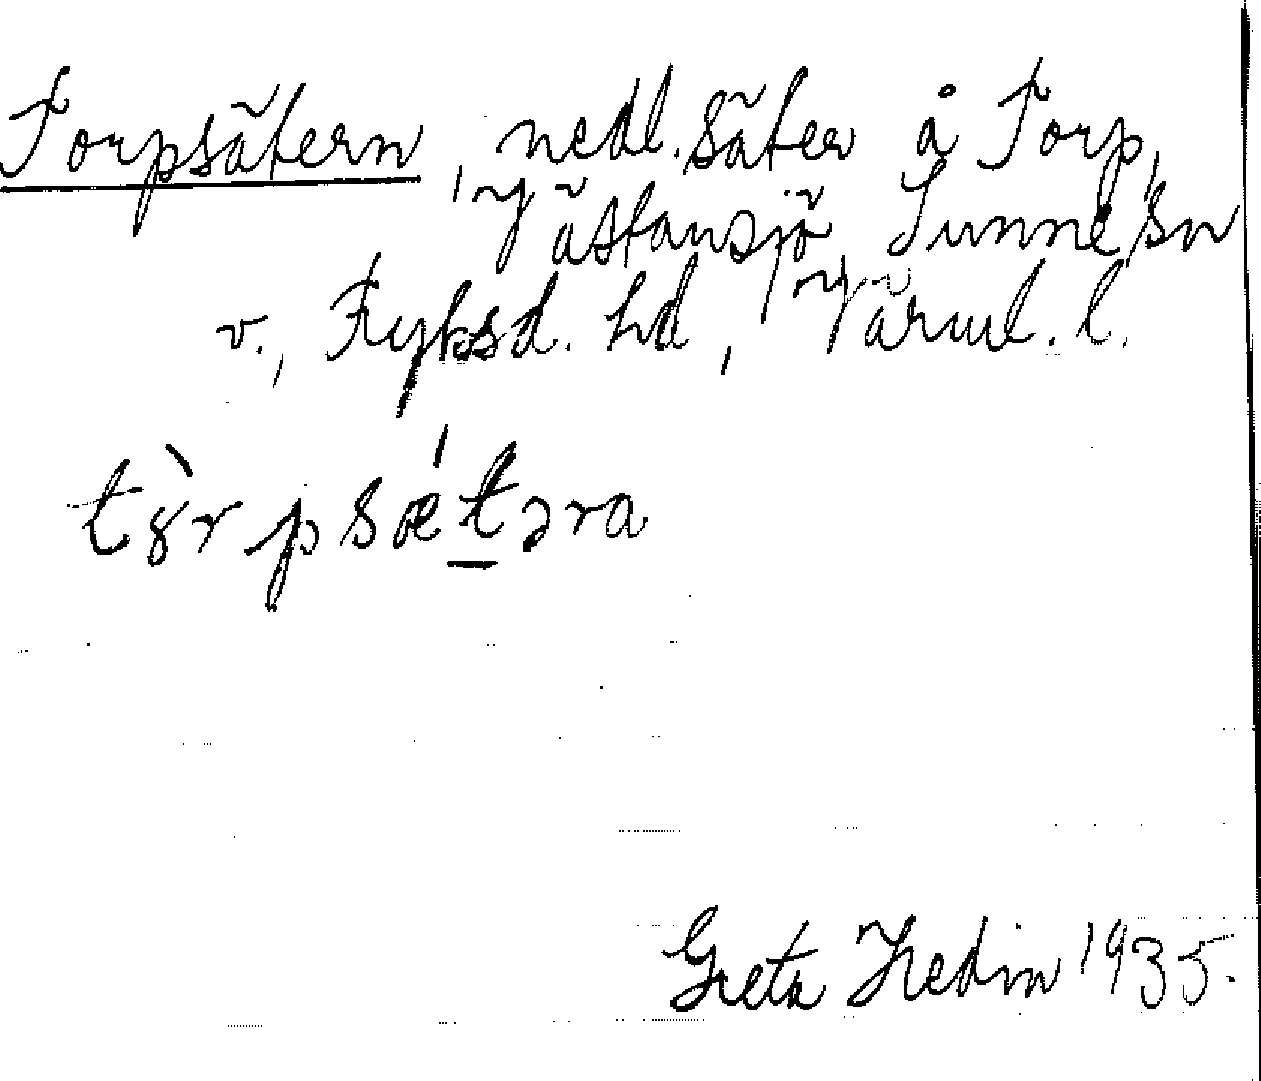 Torpsätern, nedl. säter å Torp,
Västansjö, Sunne sn
v., Fryksd. hd, Värml. l.
tȣ̀rpsǽt̲əra
Greta Hedin 1935.